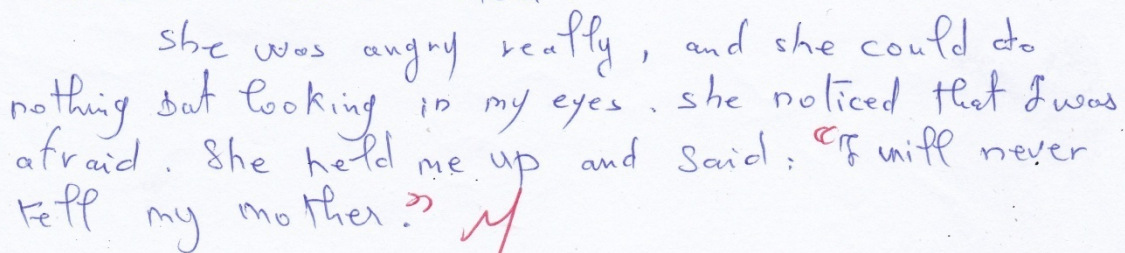 she was angry really, and she could do
nothing but looking in my eyes. she noticed that I was
afraid. She held me up and said: "I will never
tell my mother."